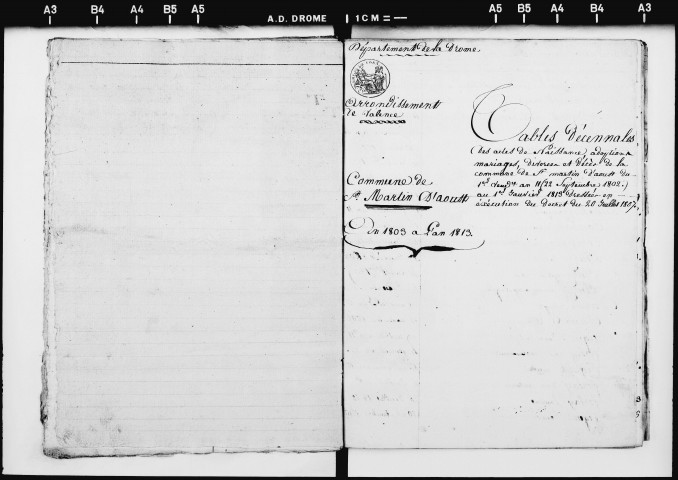 A3 B4 A4 B5 A5 A.D. DROME 1 CM A5 B5 A4 B4 A3
Département de la Drome
Arrondissement
de Valence
Commune de
St. Martin D'aoust
Du 1803 a l'an 1813.
Tables Décennales
(des actes de Naissance, adoption
mariages, divorces et Décès de la
commune de St. martin d'aoust du
1er. Vendre. an 11 (22 Septembre 1802.)
au 1er. Janvier 1813 dressées en
exécution du Décret du 20 Juillet 1807.